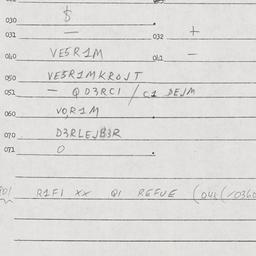 030 $
031 — 032 +
040 VE5R1M 041 —
050 VE5R1MKROJT
051 — QD3RCI / C1 DEJM
060 VO,R1M
070 D3RLEJB3R
071 0
R1FI XX QI REFUE (04